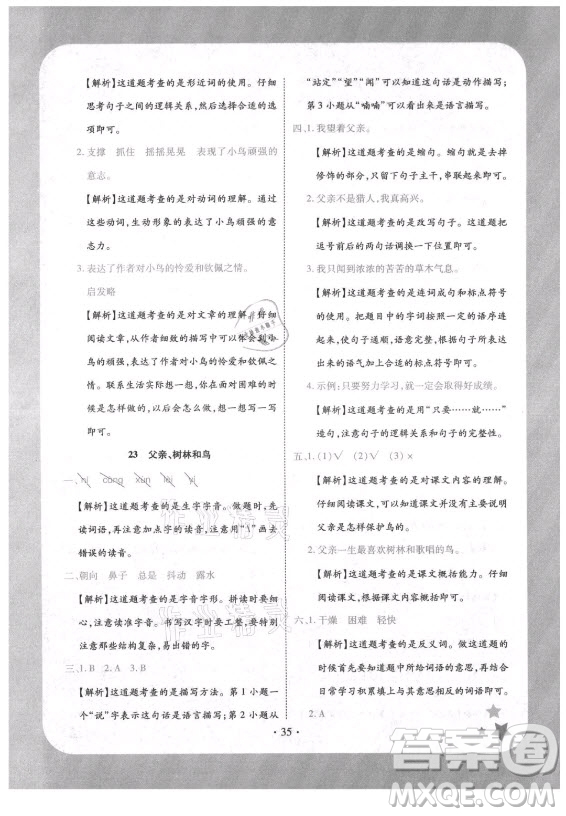 【解析】这道题考查的是形近词的使用。仔细
思考句子之间的逻辑关系，然后选择合适的选
项即可。
2. 支撑 抓住 摇摇晃晃 表现了小鸟顽强的
意志。
【解析】这道题考查的是对动词的理解。借助
这些动词，生动形象的表达了小鸟顽强的意
志力。
3. 表达了作者对小鸟的怜爱和钦佩之情。
启发略
【解析】这道题考查的是对文章的理解。仔细
阅读文章，从作者细细的描写中可以体会到小
鸟的顽强，作者对小鸟的怜爱以及对它的钦佩
之情。联系生活实际，想一想在遇到困难的时
候是怎样做的，以后要怎样做，完整地写下来
即可。
23 父亲、树林和鸟
一、ní cóng xún lèi yì
【解析】这道题考查的是生字字音。做题时，先
读词语，再注意加点字的读音，用“\”画去
错误的读音。
二、朝向 鼻子 总是 抖动 露水
【解析】这道题考查的是拼写字词。拼读时要
细心，注意整体音节。书写汉字时要工整，要
注意那些结构复杂，易出错的字。
三、1. B 2. A 3. B
【解析】这道题考查的是描写方法。第 1 小题
一个“说”字表示这句话是语言描写；第 2 小题从
“站定”“望”“闻”可以看出这句话是动作描写；
第 3 小题从“喃喃”可以看出来是语言描写。
四、1. 我望着父亲。
【解析】这道题考查的是缩句。缩句就是去掉
修饰的部分，只留下句子主干，串联起来即可。
2. 父亲不是猎人，我真高兴。
【解析】这道题考查的是改写句子。把句中的
逗号前后的两句话调换一下位置即可。
3. 我只闻到浓浓的苦苦的草木气息。
【解析】这道题考查的是连词成句和标点符号
的使用。把打乱顺序的词语按一定的语序连
起来，使句子通顺、意思完整，最后根据所表达
的语气加上合适的标点符号即可。
4. 示例：只要努力学习，就一定会取得好成绩。
【解析】这道题考查的是用“只要……就……”
造句，注意句子的逻辑关系和句子的完整性。
五、1. (1)√ (2)√ (3)×
【解析】这道题考查的是对课文内容的理解。
仔细阅读课文，可以从课文中的细节描写知道
父亲是怎样保护鸟的。
2. 父亲一生最喜欢树林和歌唱的鸟。
【解析】这道题考查的是课文概括能力。读懂
课文，根据课文内容概括即可。
六、1. 干燥 困难 轻快
【解析】这道题考查的是反义词。遇到这类题
时候首先要知道所给词语的意思，然后再根据
日常学习积累填上与其意思相对或者相反的
词语即可。
2. A
· 35 ·
作业精灵
作业精灵
答案圈
MXQE.COM